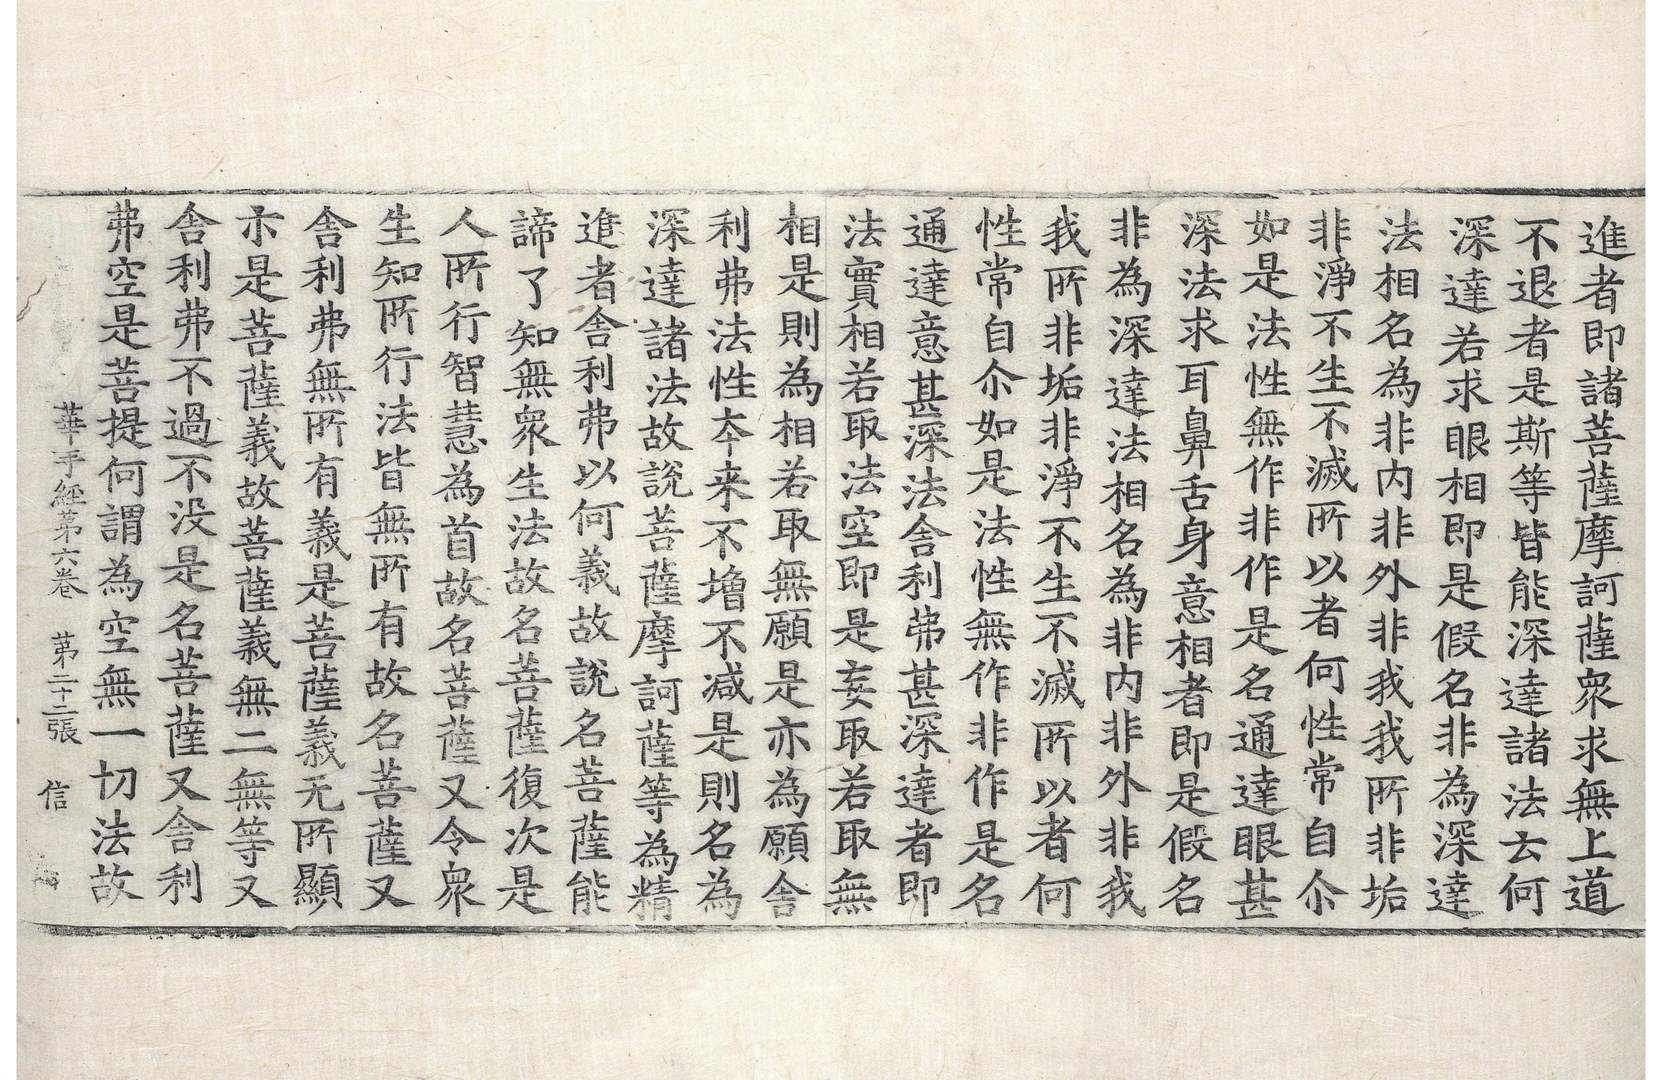 進者即諸菩薩摩訶薩衆求無上道
不退者是斯等皆能深達諸法云何
深達若求眼相即是假名非為深達
法相名為非内非外非我我所非垢
非淨不生不滅所以者何性常自尒
如是法性無作非作是名通達眼甚
深法求耳鼻舌身意相者即是假名
非為深達法相名為非内非外非我
我所非垢非淨不生不滅所以者何
性常自尒如是法性無作非作是名
通達意甚深法舎利弗甚深達者即
法實相若取法空即是妄取若取無
相是則為相若取無願是亦為願舎
利弗法性夲来不增不减是則名為
深達諸法故説菩薩摩訶薩等為精
進者舎利弗以何義故説名菩薩能
諦了知無衆生法故名菩薩復次是
人所行智慧為首故名菩薩又令衆
生知所行行法皆無所有故名菩薩又
舎利弗無所有義是菩薩義无所顯
亦是菩薩義故菩薩義無二無等又
舎利弗不過不没是名菩薩又舎利
弗空是菩提何謂為空無一切法故
華手經第六卷 第二十二張 信